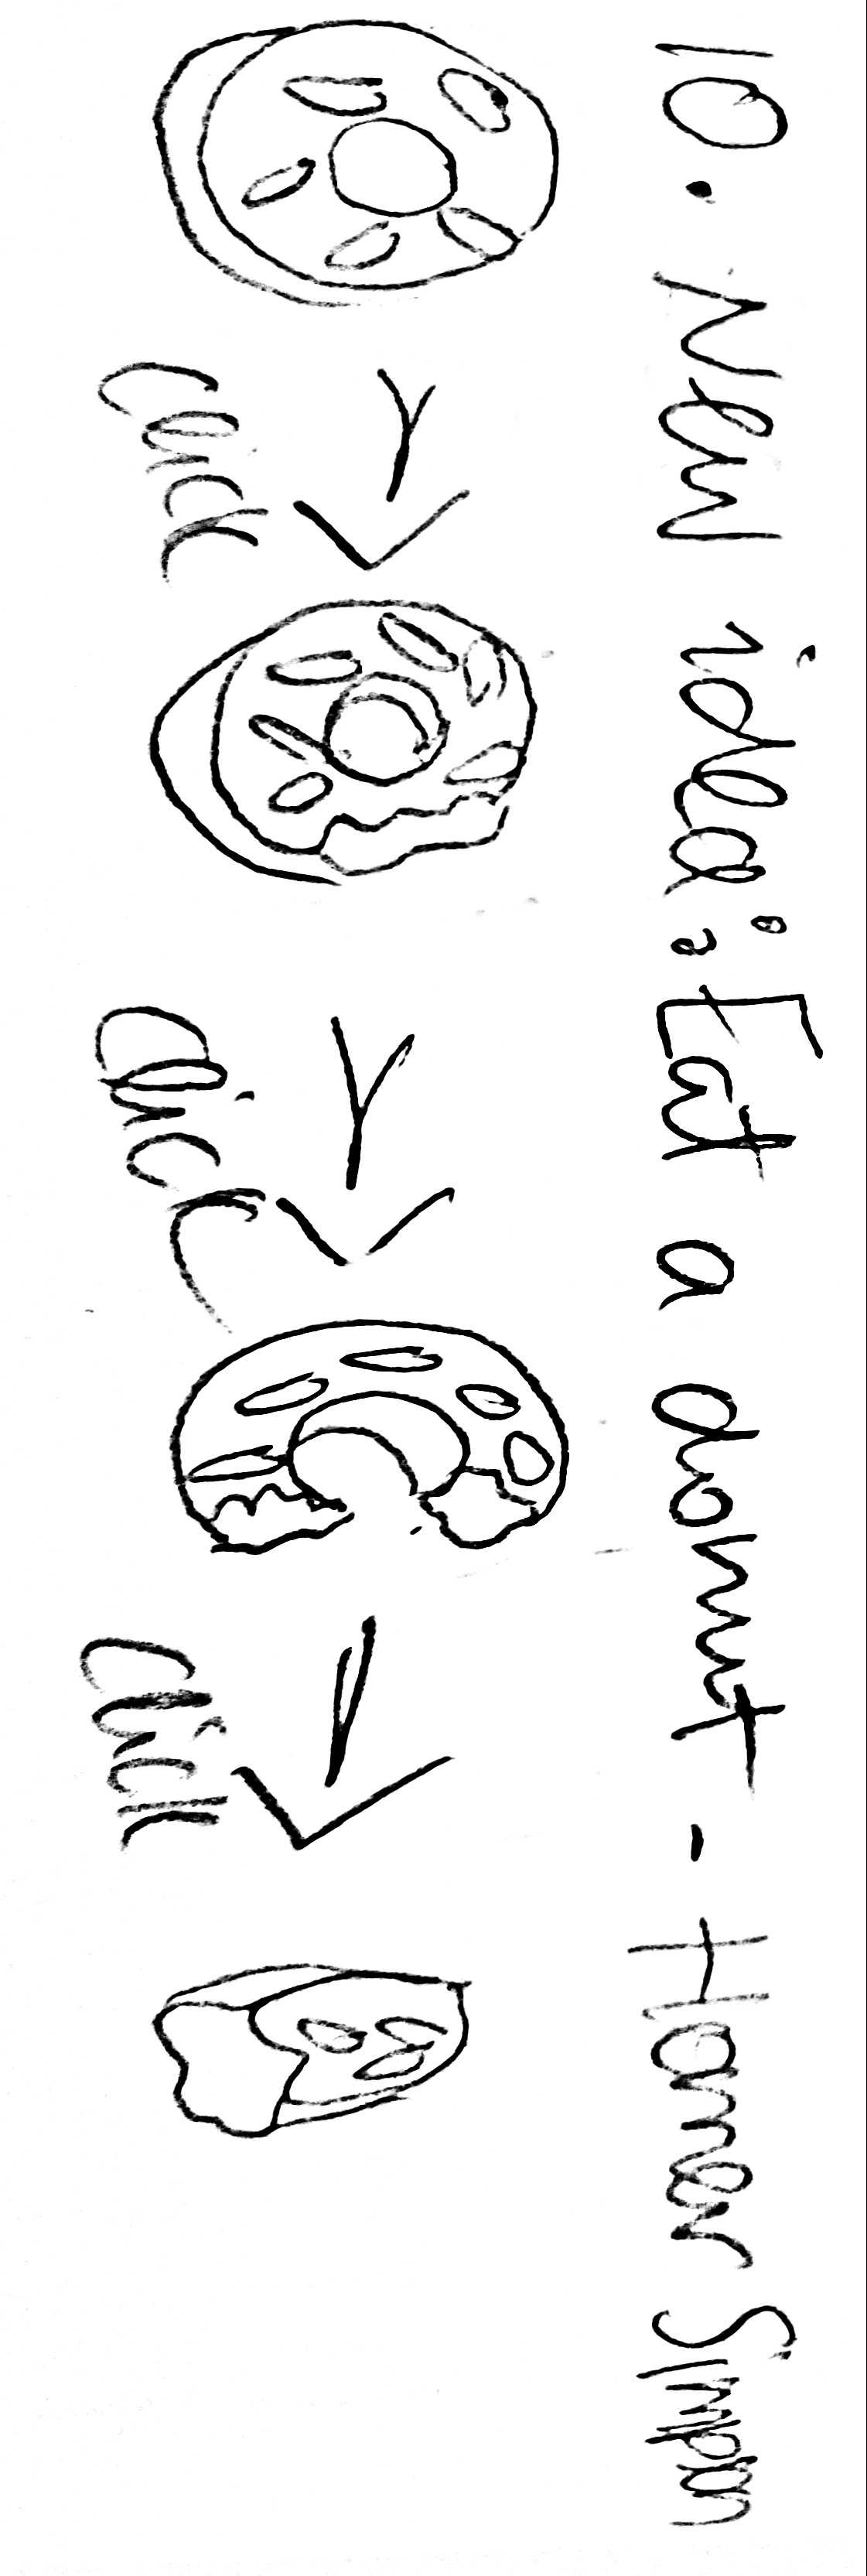 10. New idea: Eat a donut - Homer Simpson
click click click